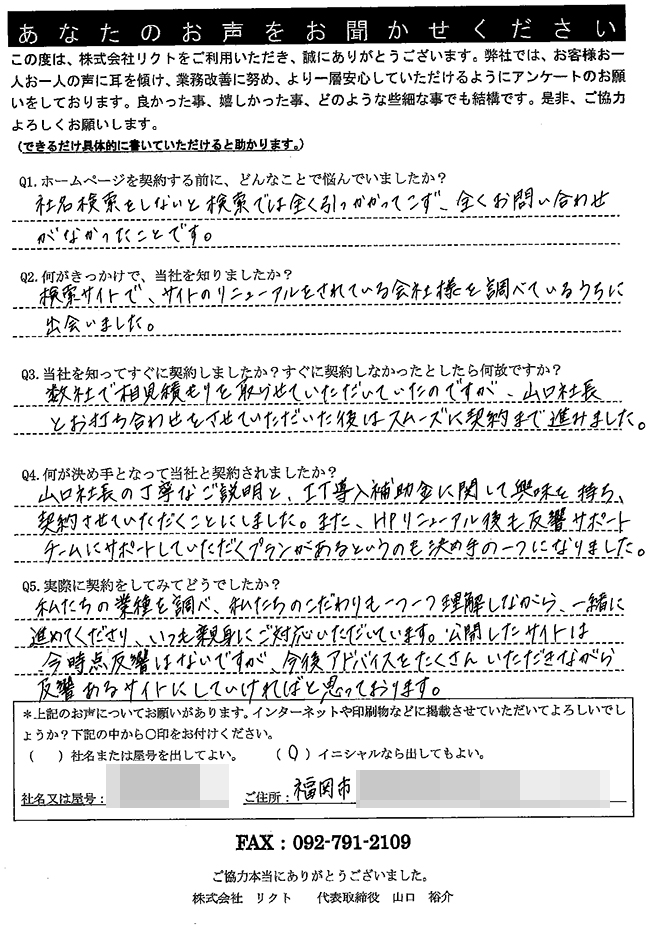 あなたのお声をお聞かせください
この度は、株式会社リクトをご利用いただき、誠にありがとうございます。弊社では、お客様お一
人お一人の声に耳を傾け、業務改善に努め、より一層安心していただけるようにアンケートのお願
いをしております。良かった事、嬉しかった事、どのような些細な事でも結構です。是非、ご協力
よろしくお願いします。
(できるだけ具体的に書いていただけると助かります。)
Q1.ホームページを契約する前に、どんなことで悩んでいましたか？
社名検索をしないと検索では全く引っかかってこず、全くお問い合わせ
がなかったことです。
Q2.何がきっかけで、当社を知りましたか？
検索サイトで、サイトのリニューアルをされている会社様を調べているうちに
出会いました。
Q3.当社を知ってすぐに契約しましたか？すぐに契約しなかったとしたら何故ですか？
数社で相見積もりを取らせていただいていたのですが、山口社長
とお打ち合わせをさせていただいた後はスムーズに契約まで進みました。
Q4.何が決め手となって当社と契約されましたか？
山口社長の丁寧なご説明と、IT導入補助金に関して興味を持ち、
契約させていただくことにしました。また、HPリニューアル後も反響サポート
チームにサポートしていただくプランがあるというのも決め手の一つになりました。
Q5.実際に契約をしてみてどうでしたか？
私たちの業種を調べ、私たちのこだわりも一つ一つ理解しながら、一緒に
進めてくださり、いつも親身にご対応いただいています。公開したサイトは
今時点反響はないですが、今後アドバイスをたくさんいただきながら
反響あるサイトにしていければと思っております。
＊上記のお声についてお願いがあります。インターネットや印刷物などに掲載させていただいてよろしいでし
ょうか？下記の中から〇印をお付けください。
(　)社名または屋号を出してよい。　(〇)イニシャルなら出してもよい。
社名又は屋号：　ご住所：福岡市
FAX：092-791-2109
ご協力本当にありがとうございました。
株式会社　リクト　代表取締役　山口　裕介